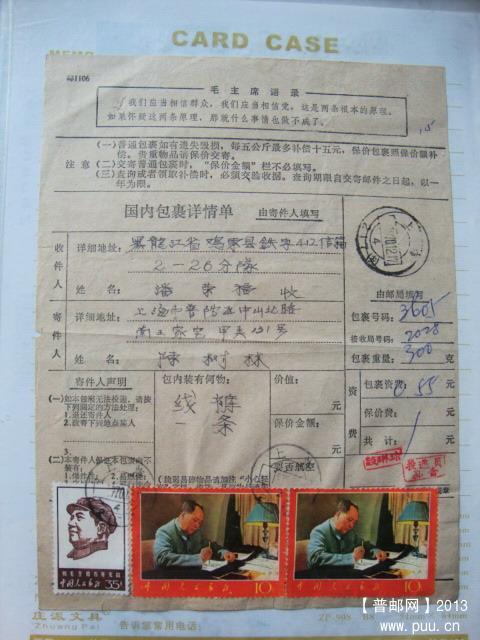 CARD CASE
MEMO
邮1106
毛主席语录
我们应当相信群众，我们应当相信党，这是两条根本的原理。
如果怀疑这两条原理，那就什么事情也做不成了。
(一)普通包裹如有遗失毁损，每五公斤最多补偿十五元，保价包裹照保价额补
偿。贵重物品请保价交寄。
注意 (二)交寄普通包裹时，“保价金额”栏不必填写。
(三)查询或者领取补偿时，必须交验收据。查询期限自交寄邮件之日起，以一
年为限。
国内包裹详情单 由寄件人填写
收件人
详细地址：黑龍江省鸡東县鉄字412信箱
2－26分隊
姓名： 收
由邮局填写
寄件人
详细地址：上海市普陀区中山北路
121号
姓名：陳树林
包裹号码：3605
接收局号码：2028
包裹重量：300 克
寄件人声明
(一)如本包裹无法投递，请按
下列圈定的方法处理：
1.退还寄件人
2.改寄下列地点某人
3.
包内装有何物：
线裤
一条
价值：
元
保价金额：
元
资费
包裹资费：0.55 元
保价费： 元
共计： 元
要否航空
35分
中国人民邮政 10
中国人民邮政 10
庄派文具
Zhuang Pai
告诉您常用电话：
【普邮网】2013
www.puu.cn